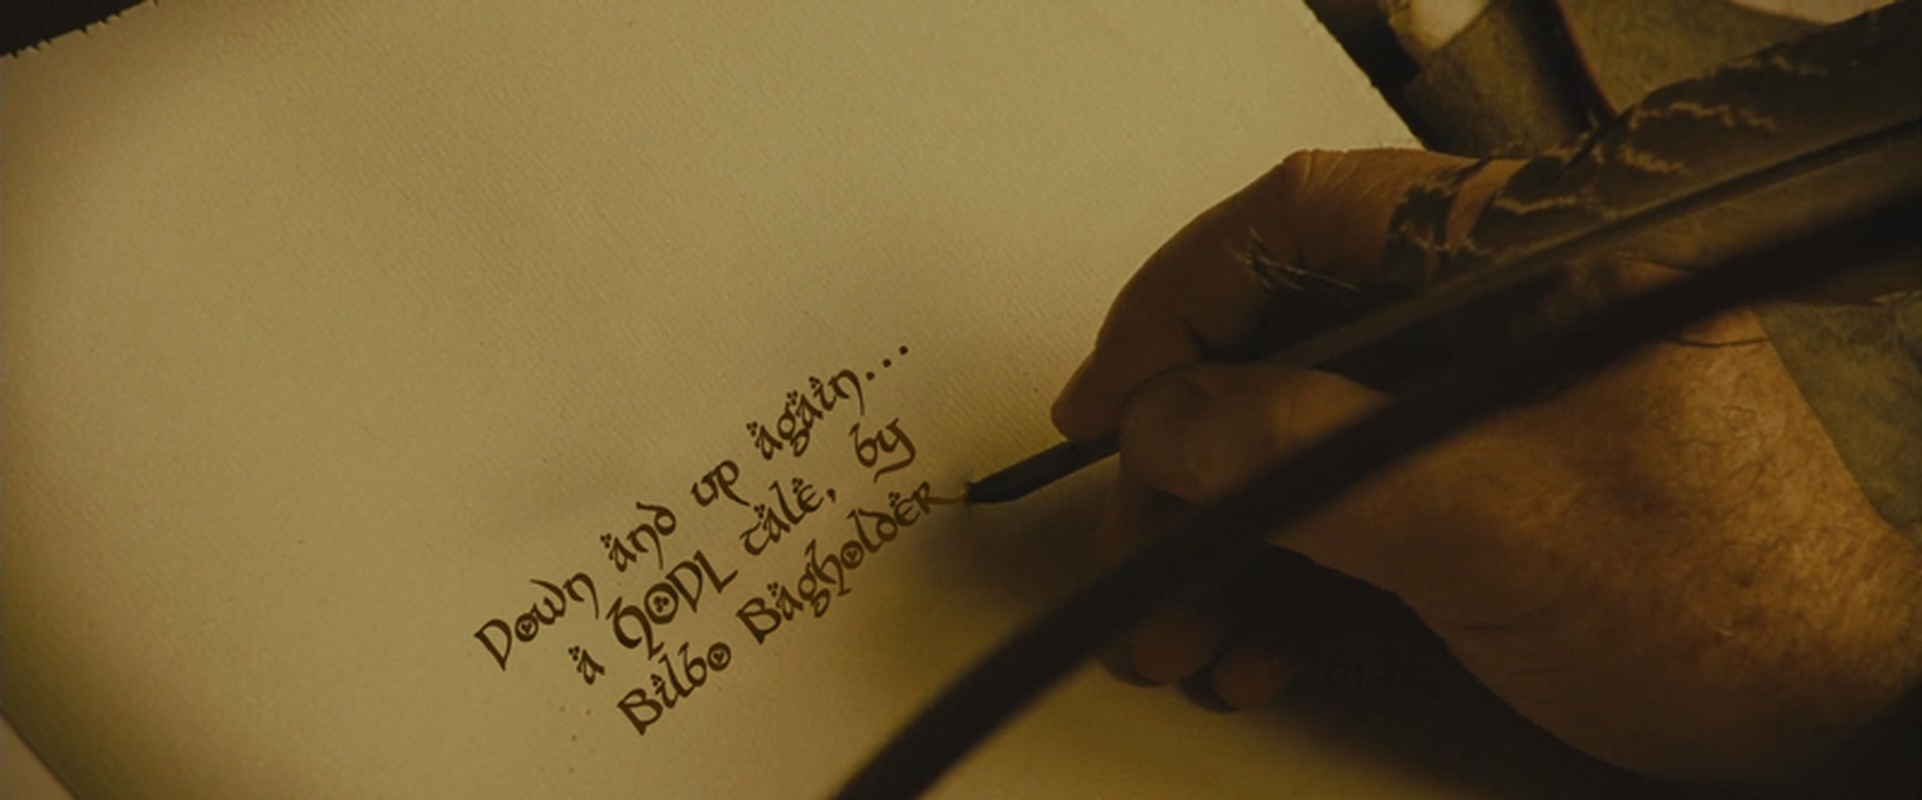 Down and up again...
a HODL tale, by
Bilbo Bagholder